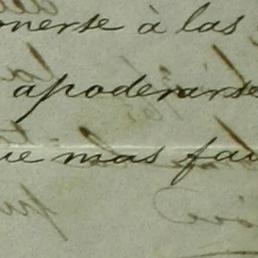 onerse à las
apoderarse
ue mas fav